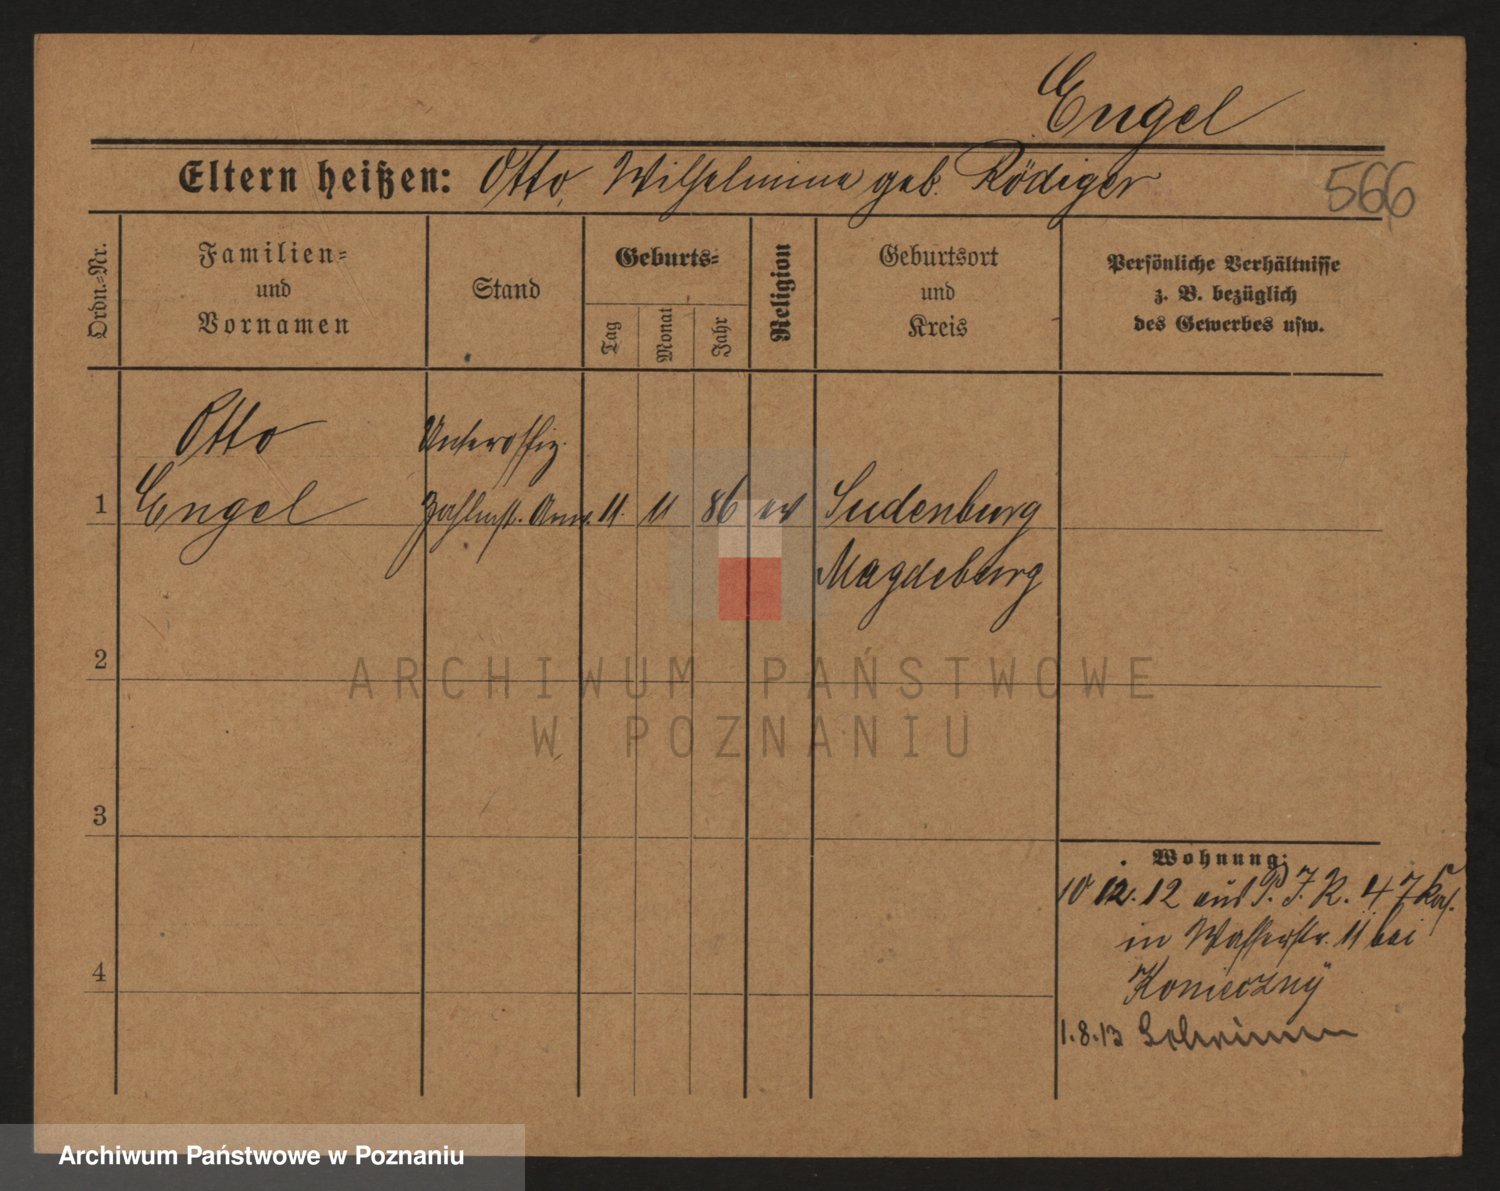 Engel
Eltern heißen: Otto, Wilhelmine geb. Rödiger
566
Ordn.=Nr.
Familien=
und
Vornamen
Stand
Geburts=
Tag
Monat
Jahr
Religion
Geburtsort
und
Kreis
Persönliche Verhältnisse
z. B. bezüglich
des Gewerbes usw.
Otto
Unteroffiz.
1 Engel Zahlmst. Anw. 11. 11 86 ev Sudenburg
Magdeburg
2
3
4
Wohnung:
10 12. 12 aus P. J. R. 47 Kas.
in Wasserstr. 11 bei
Konieczny
1.8.13
ARCHIWUM PAŃSTWOWE
W POZNANIU
Archiwum Państwowe w Poznaniu